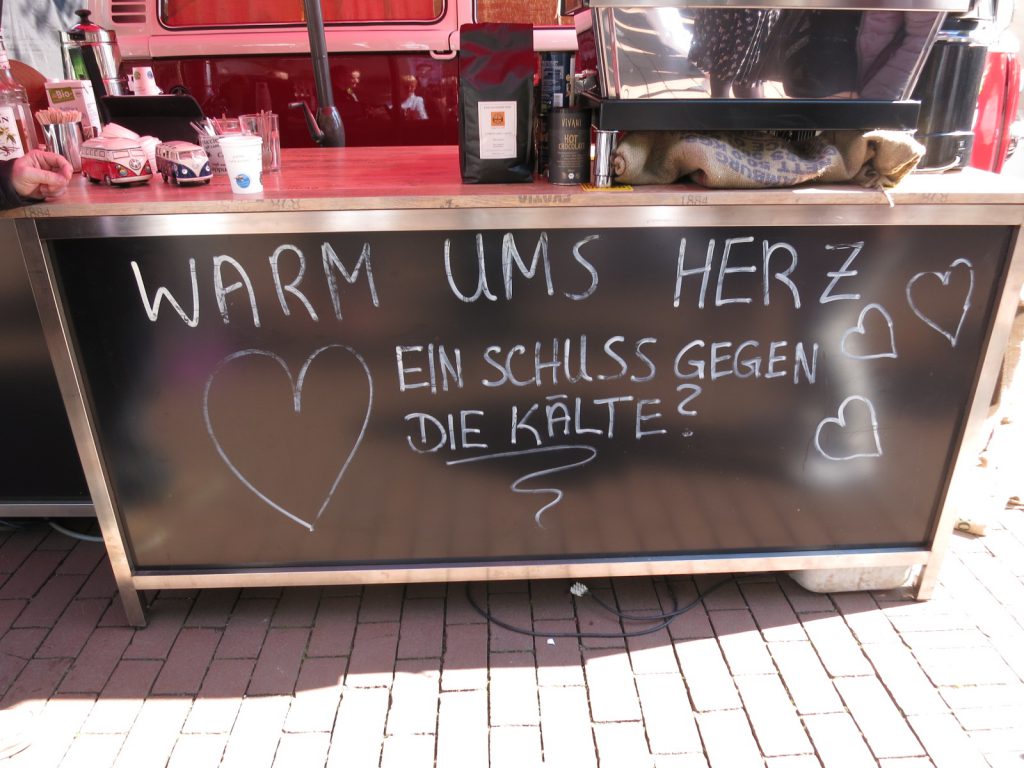 WARM UMS HERZ
EIN SCHUSS GEGEN
DIE KÄLTE?
VIVANI
HOT
CHOCOLATE
Bio
1884